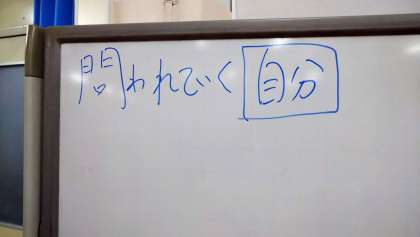 問われていく自分